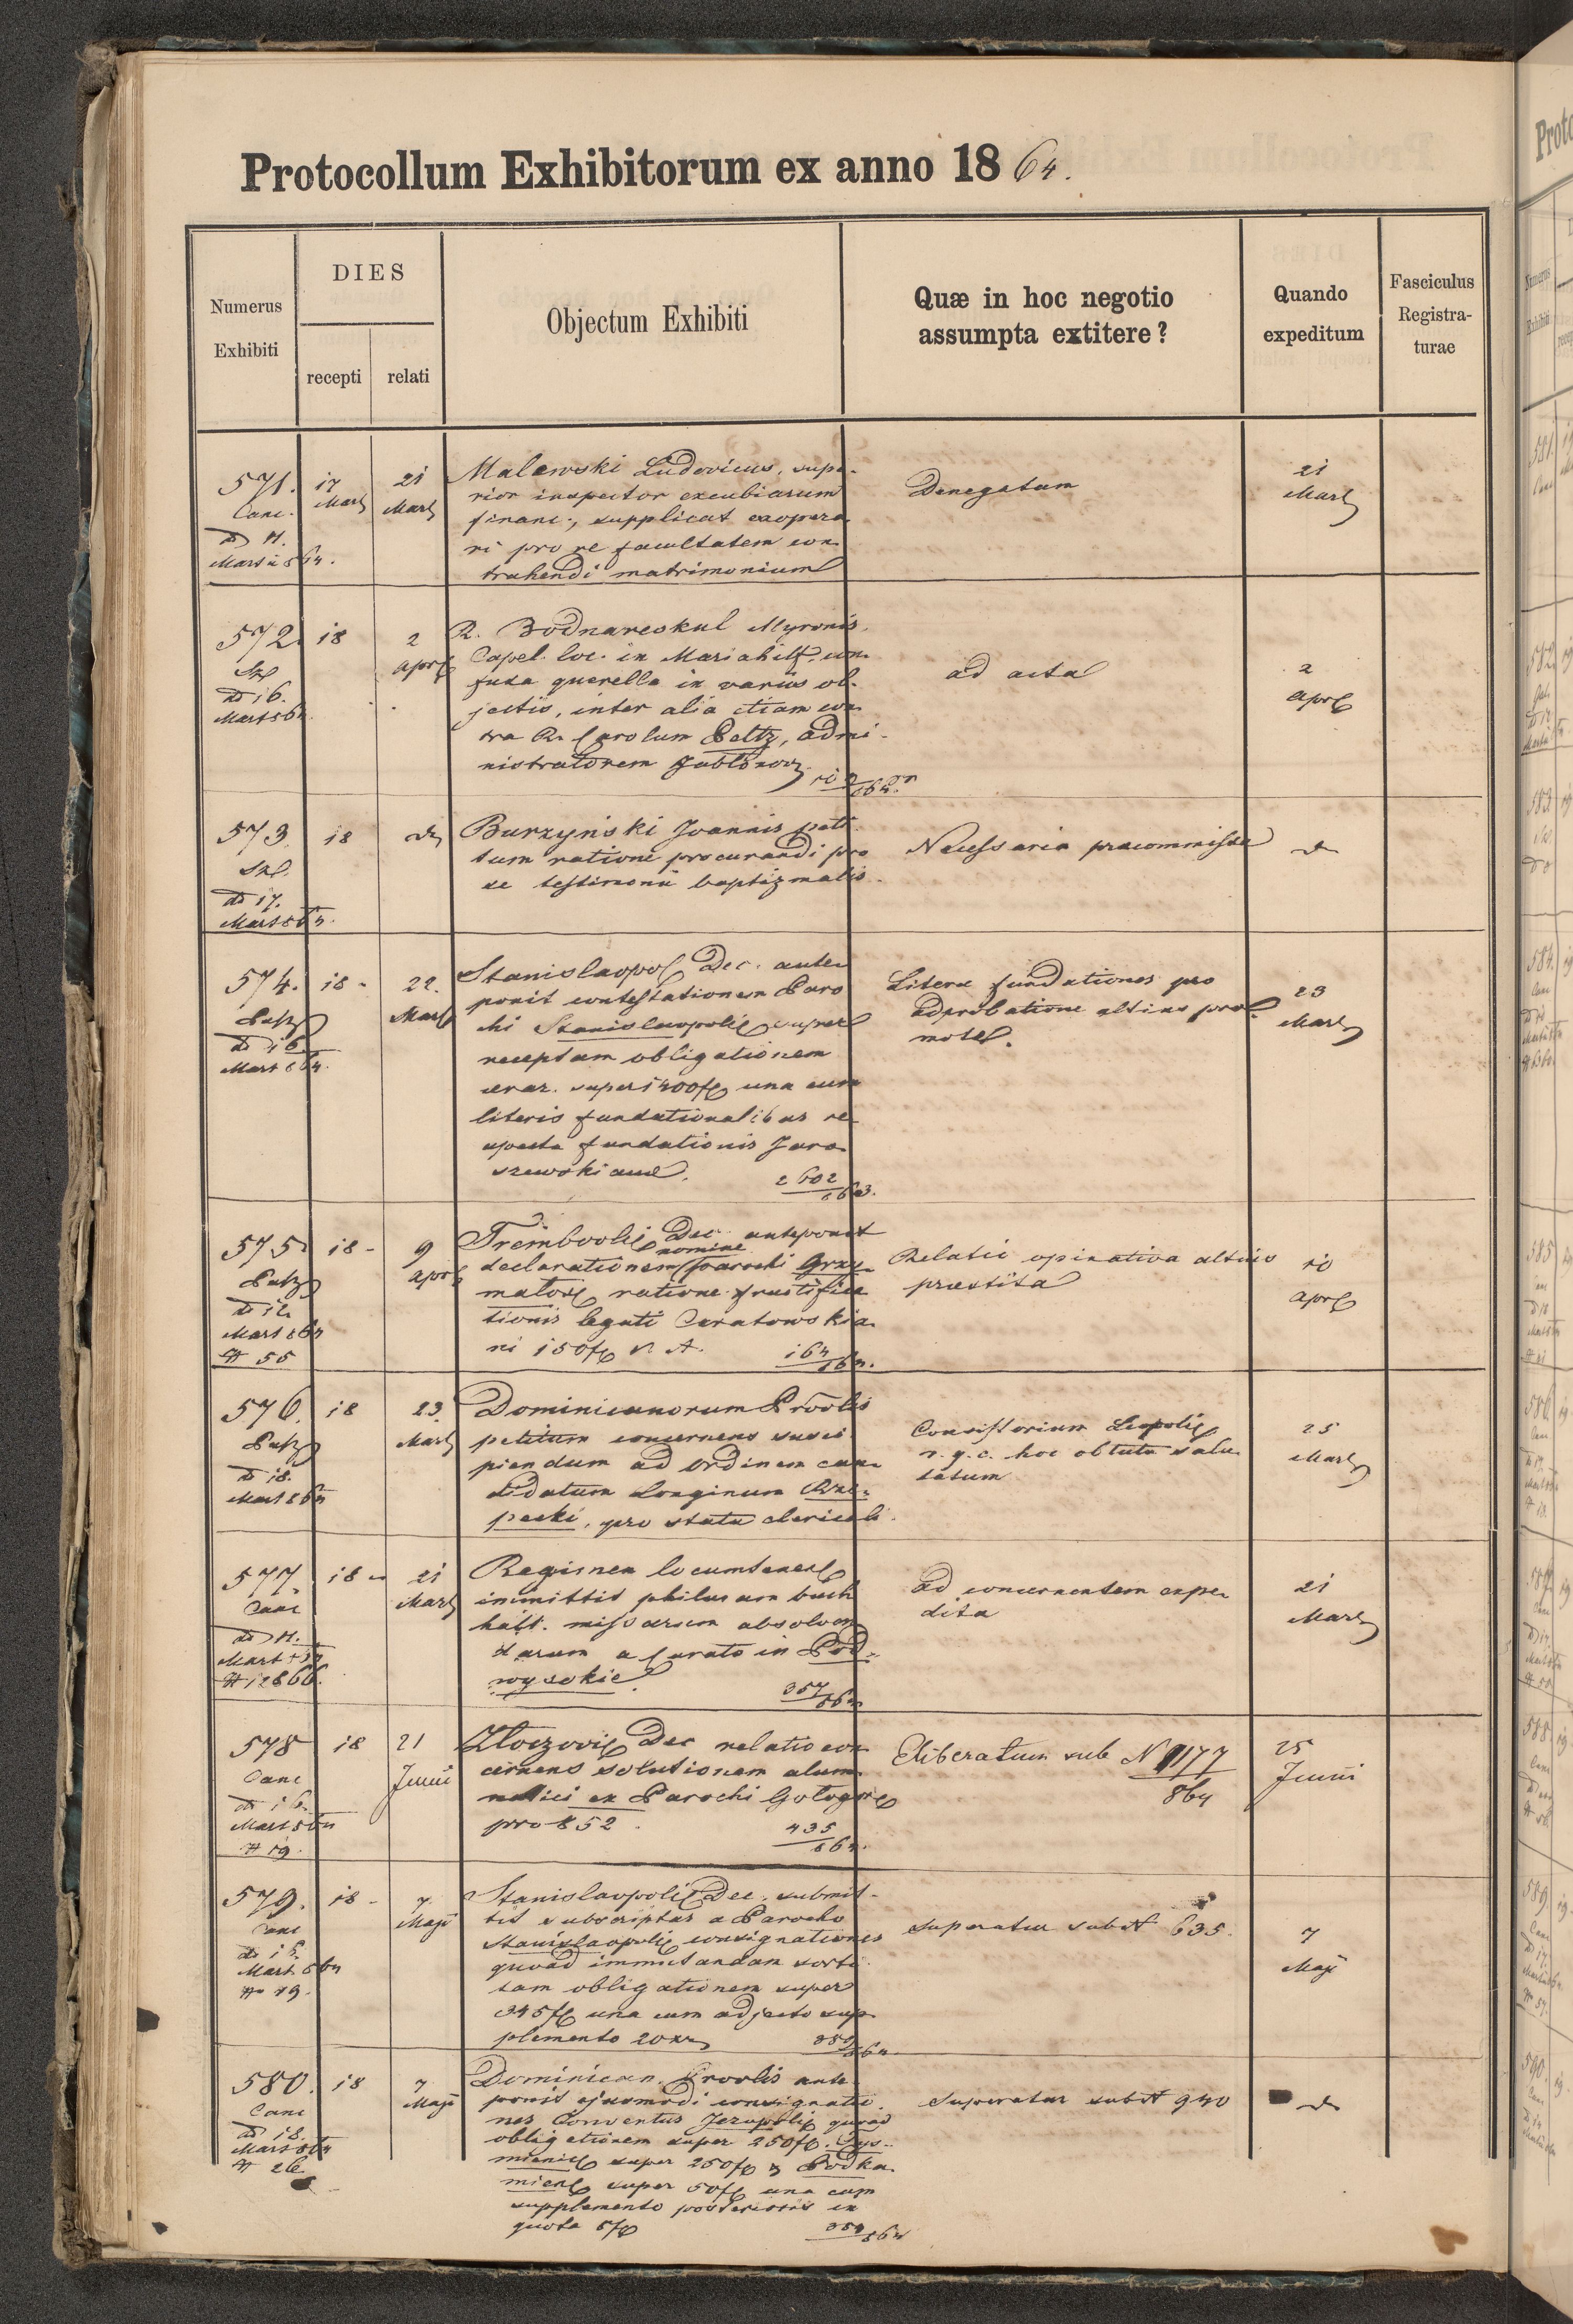 Protocollum Exhibitorum ex anno 1864.
Numerus Exhibiti
DIES
recepti
relati
Objectum Exhibiti
Quæ in hoc negotio assumpta extitere?
Quando expeditum
Fasciculus Registra-turae
571.
Canc.
11.
Martii 864.
17 Mart
21 Mart
Malewski Ludovicus, supe-
rior inspector excubiarum
financ., supplicat exopera
ri pro se facultatem con
trahendi matrimonium
Denegatum
21 Mart
572.
16.
Mart 864
18
2 Apr
R. Bodnareskul Myronis,
Capel. loc. in Mariahilf, con
fusa querella in variis ob-
jectis, inter alia etiam con
tra R. Carolum Peltz, admi-
nistratorem Jablonow
ad acta
2 Apr
573.
17.
Mart 864.
18
Burzyński Joannis peti
tum ratione procurandi pro
se testimonii baptizmalis
Necessaria praecommissa
574.
16.
Mart 864.
18
22. Mart
Stanislaopol Dec. ante
ponit contestationem Paro
chi Stanislaopoli super
receptam obligationem
aerar. super 1400 f una cum
literis fundationalibus re
spectu fundationis Jaro
szewskianae.
2602
863.
Literae fundationes pro
adprobatione altius pro
motae.
23 Mart
575
12
Mart 864
# 55
18
9 Apr
Trembovli Dec. anteponit
nomine
declarationem parochi Grzy
malov ratione fructifica
tionis legati Curatowskia
ni 150 f V. A.
164
864.
Relatio opinativa altius
praestita
10 Apr
576.
18.
Mart 864
18
23. Mart
Dominicanorum Provlis
petitum concernens susci
piendum ad Ordinem can
didatum Longinum Rze-
pecki, pro statu clericali.
Consistorium Leopoli
r. g. c. hoc obtutu salu
tatum
25 Mart
577.
Canc
11.
Mart 864
# 12866.
18
21 Mart
Regimen locumtenent
inmittit phileram buch
halt. missarum absolven
darum a Curato in Pod-
wysokie.
357
864
ad concernentem expe
dita
21 Mart
578
Canc
16.
Mart 864
# 19.
18
21 Junii
Zloczovi Dec relatio con
cernens solutionem alum
natici ex Parochi Gologor
pro 852.
435
864.
Eliberatum sub N 1177
864
25 Junii
579.
Canc
15.
Mart. 864
# 19.
18
7 Maji
Stanislaopoli Dec. submit-
tit subscriptas a Parocho
Stanislaopoli consignationes
quoad immutandam sorti
tam obligationem super
345 f una cum adjecto sup
plemento 20 xr
864
Superatur sub N 635.
7 Maji
580.
Canc
18.
Mart 864
# 26.
18
7 Maji
Dominican. Provlis ante
ponit ejusmodi consignatio
nes Conventus Jezupoli quoad
obligationem super 250 f. Tys-
mienic super 250 f & Podka
mien super 50 f una cum
supplemento posterioris in
quota 5 f
864
Superatur sub N 940